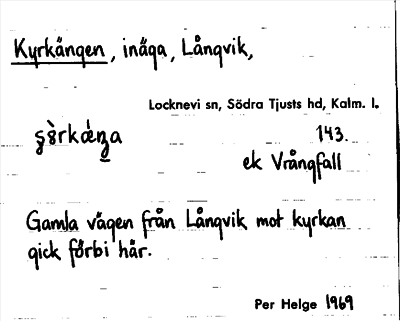 Kyrkängen, inäga, Långvik,
Locknevi sn, Södra Tjusts hd, Kalm. l.
143.
ek Vrångfall
Gamla vägen från Långvik mot kyrkan
gick förbi här.
Per Helge 1969